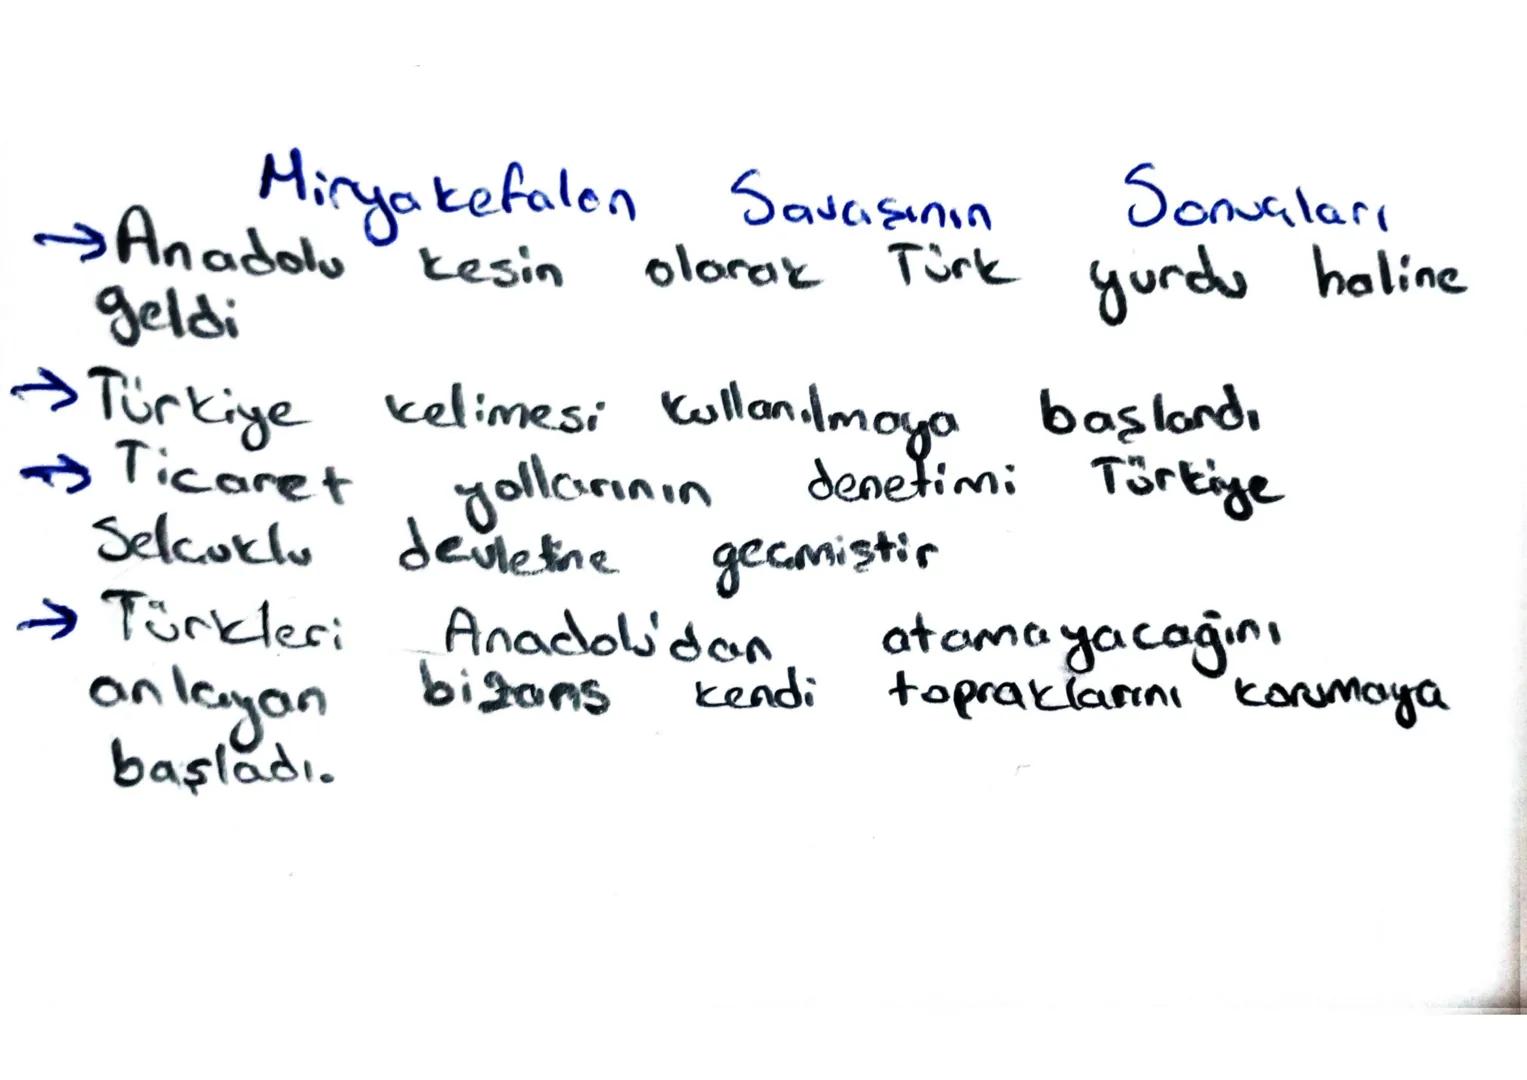 Miryakefalon Savaşının Sonuçları
→ Anadolu kesin olarak Türk yurdu haline
geldi
→ Türkiye kelimesi kullanılmaya başlandı
→ Ticaret yollarının denetimi Türkiye
Selcuklu devletine gecmiştir
→ Türkleri Anadolu'dan atamayacağını
anlayan bizans kendi topraklarını korumaya
başladı.